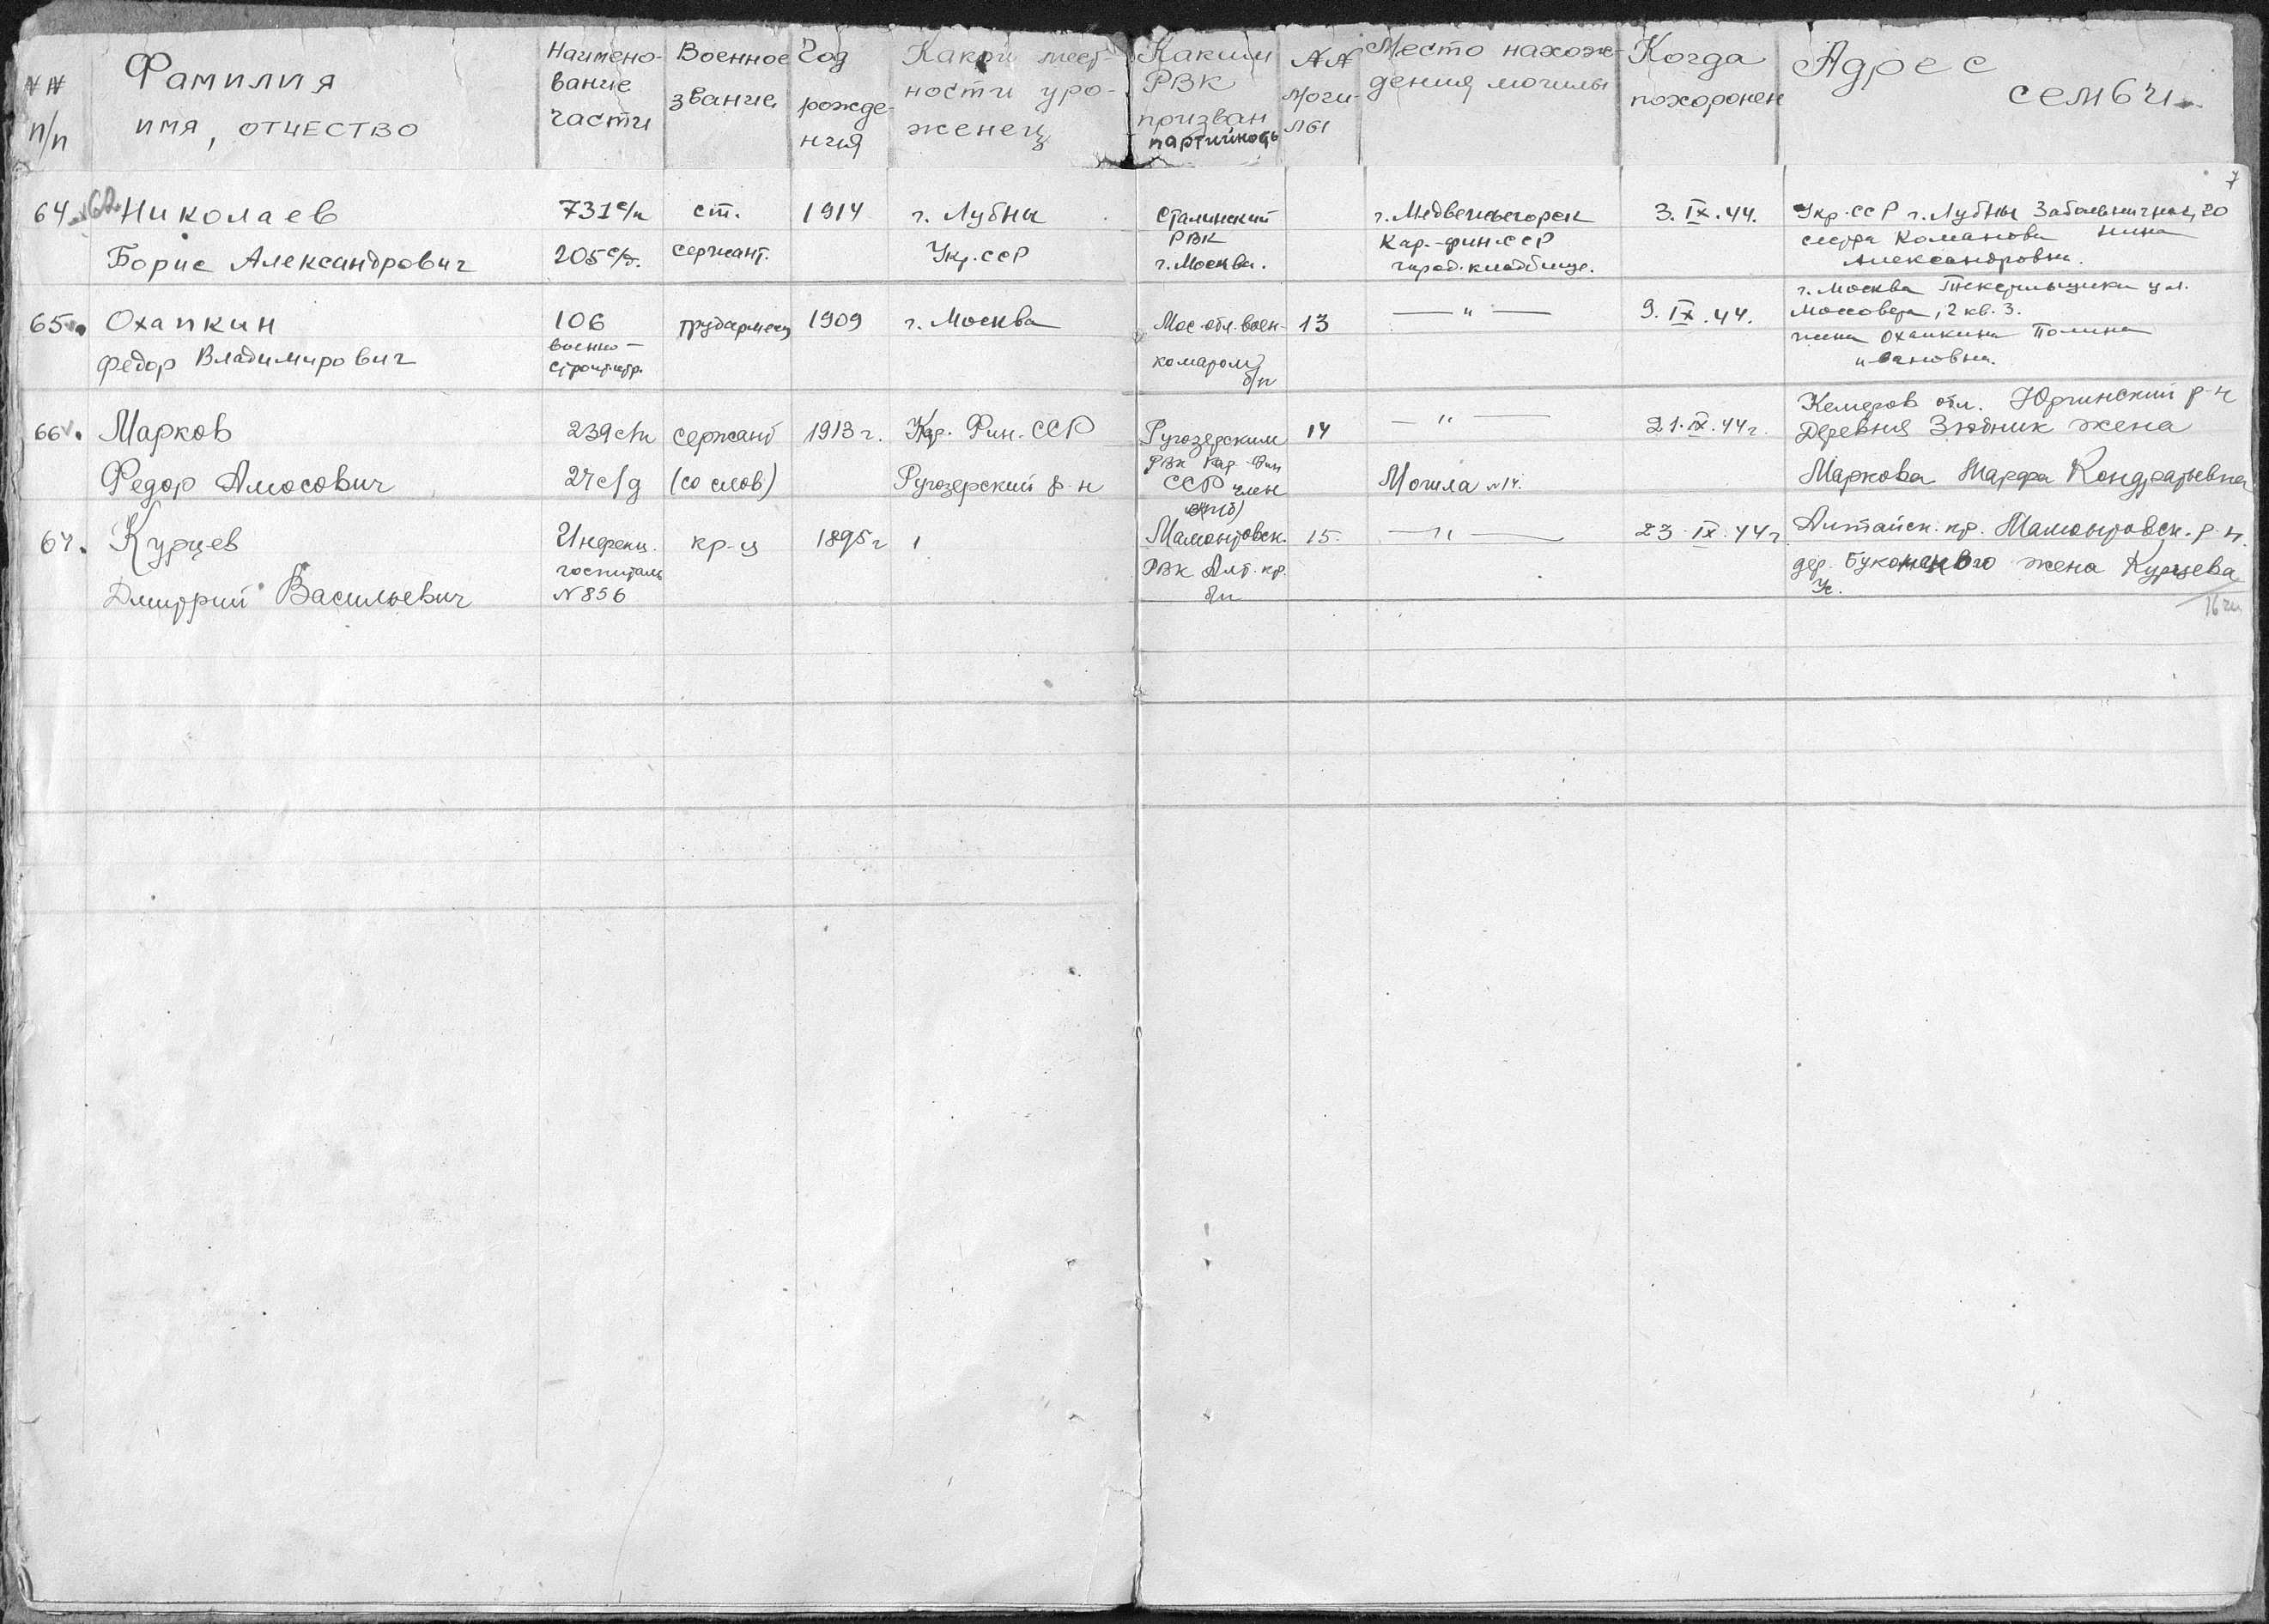 №№ п/п
Фамилия имя, отчество
Наимено-вание части
Военное звание
Год рожде-ния
Какой мест-ности уро-женец
Каким РВК призван партийность
№№ моги-лы
Место нахож-дения могилы
Когда похоронен
Адрес семьи
7
64. 62. Николаев
Борис Александрович
731 с/п
205 с/д.
ст.
сержант.
1914
г. Лубны
Укр. ССР
Сталинский
РВК
г. Москва.
г. Медвежьегорск
Кар.-фин. ССР
город. кладбище.
3.IX.44.
Укр. ССР г. Лубны 20
сестра Команова Нина
Александровна.
65. Охапкин
Федор Владимирович
106
военно-
строит. отр.
трудармеец
1909
г. Москва
Мос. обл. воен-
коматом
б/п
13
— " —
9.IX.44.
г. Москва Текстильщики ул.
Моссовета, 2 кв. 3.
жена Охапкина Полина
Ивановна.
66. Марков
Федор Амосович
239 с/п
27 с/д
сержант
(со слов)
1913 г.
Кар. Фин. ССР
Ругозерский р-н
Ругозерским
РВК Кар. Фин
ССР член
ВКП(б)
14
— " —
Могила №14.
21.IX.44 г.
Кемеров обл. Юргинский р-н
Деревня жена
Маркова Марфа Кондратьевна
67. Курцев
Дмитрий Васильевич
Инфекц.
госпиталь
№ 856
кр-ц
1895 г
Мамонтовск.
РВК Алт. кр.
б/п
15.
— " —
23.IX.44 г
Алтайск. кр. Мамонтовск. р-н.
дер. жена Курцева
У.